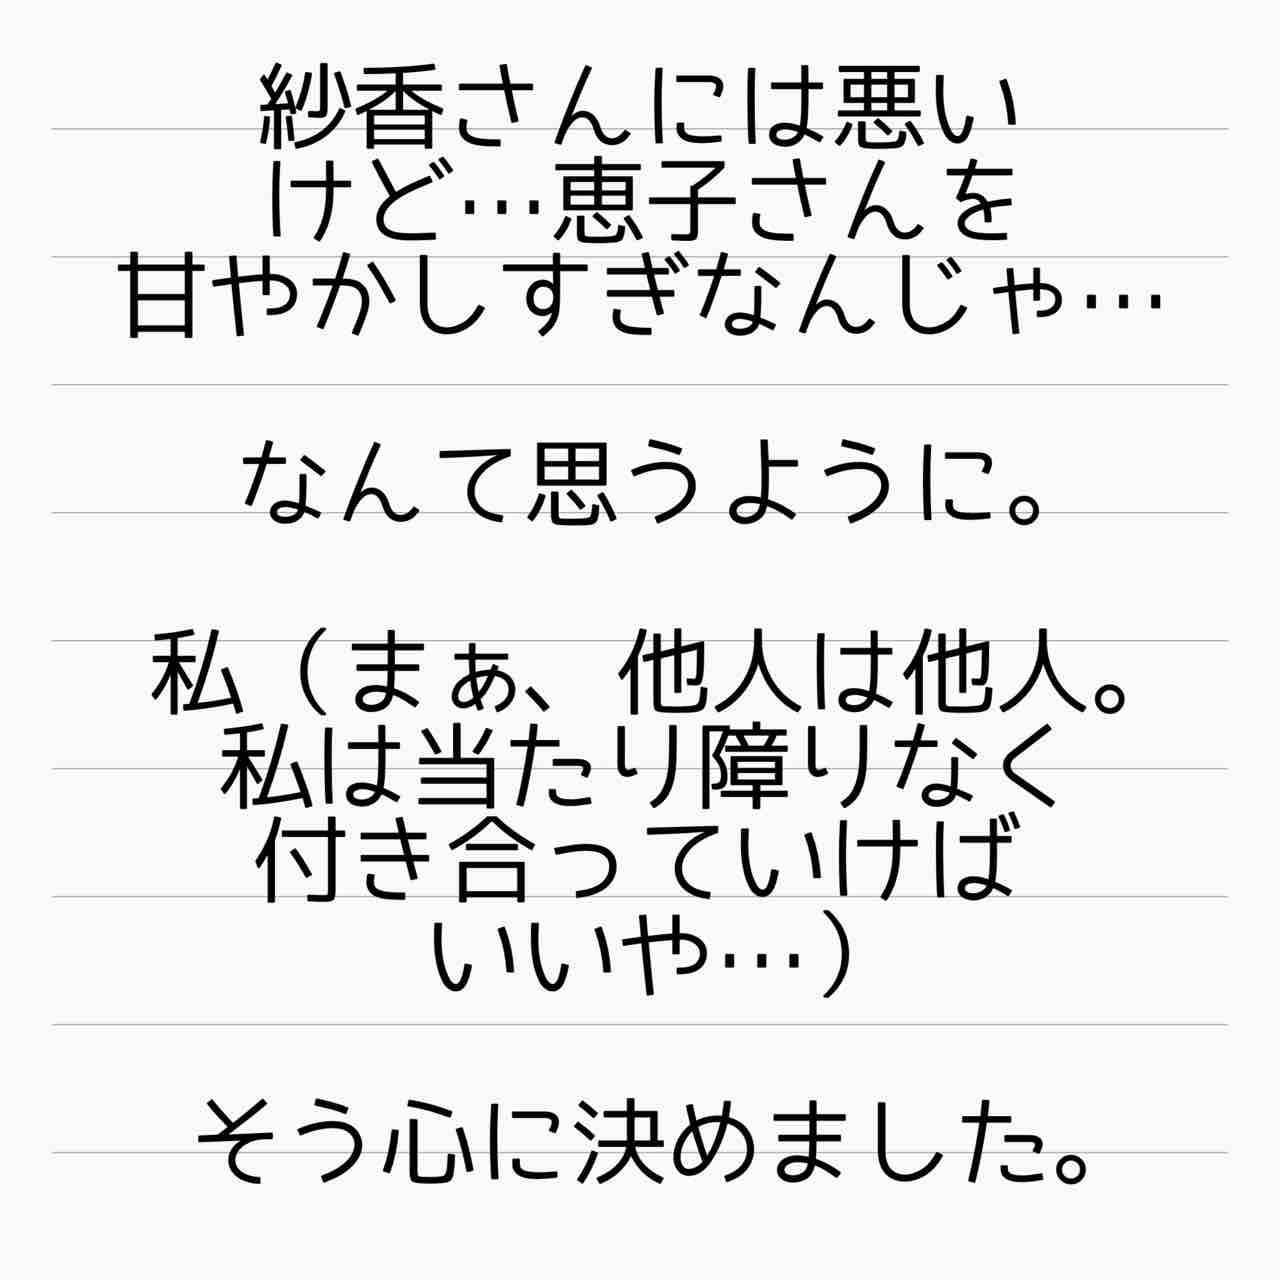 紗香さんには悪い
けど…恵子さんを
甘やかしすぎなんじゃ…
なんて思うように。
私（まぁ、他人は他人。
私は当たり障りなく
付き合っていけば
いいや…）
そう心に決めました。